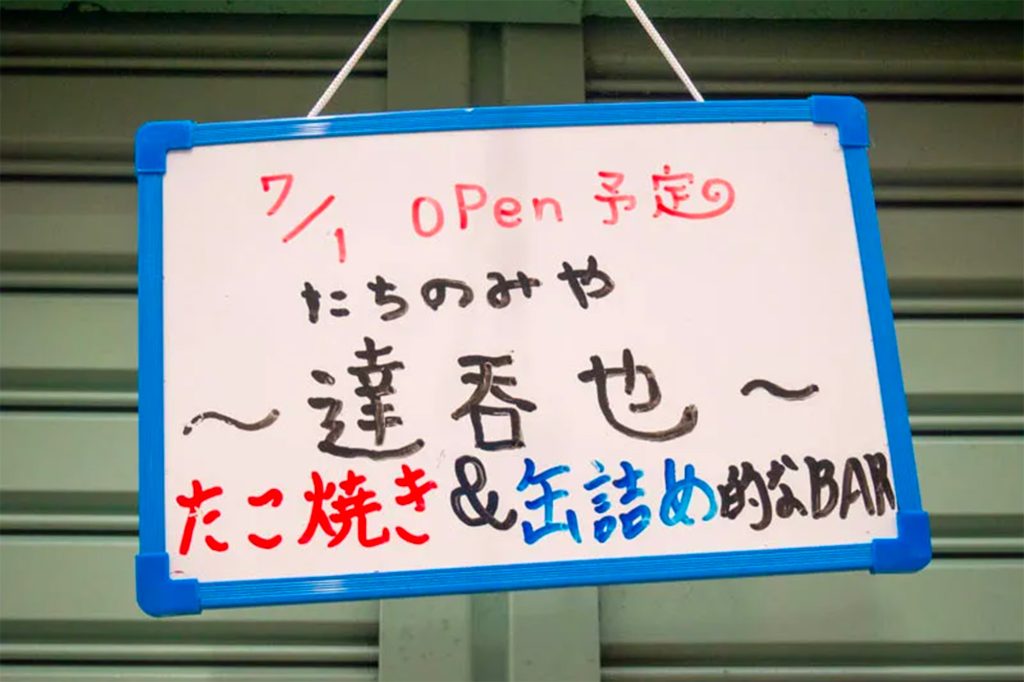 7/1 OPen 予定
たちのみや
〜達呑也〜
たこ焼き&缶詰め的なBAR